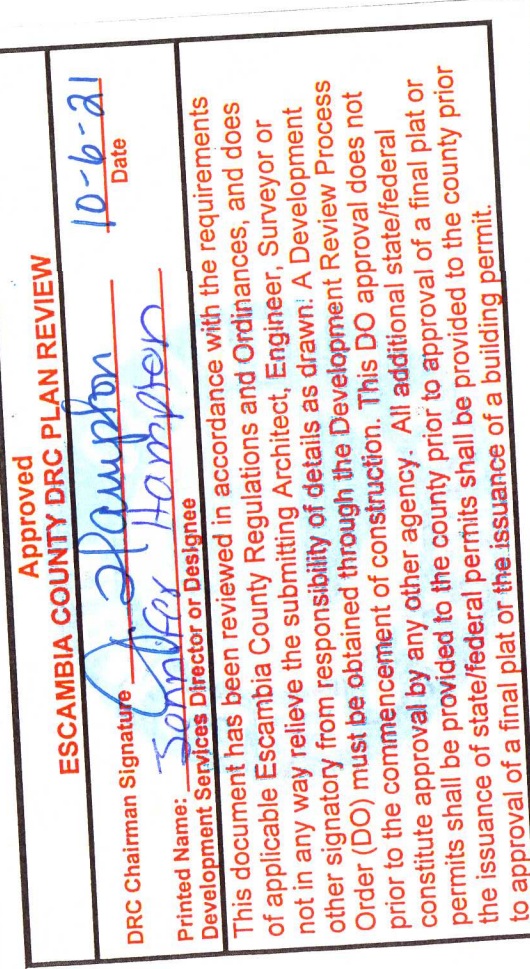 Approved
ESCAMBIA COUNTY DRC PLAN REVIEW
DRC Chairman Signature J. Hampton 10-6-21
Date
Printed Name: Jennifer Hampton
Development Services Director or Designee
This document has been reviewed in accordance with the requirements
of applicable Escambia County Regulations and Ordinances, and does
not in any way relieve the submitting Architect, Engineer, Surveyor or
other signatory from responsibility of details as drawn. A Development
Order (DO) must be obtained through the Development Review Process
prior to the commencement of construction. This DO approval does not
constitute approval by any other agency. All additional state/federal
permits shall be provided to the county prior to approval of a final plat or
the issuance of state/federal permits shall be provided to the county prior
to approval of a final plat or the issuance of a building permit.